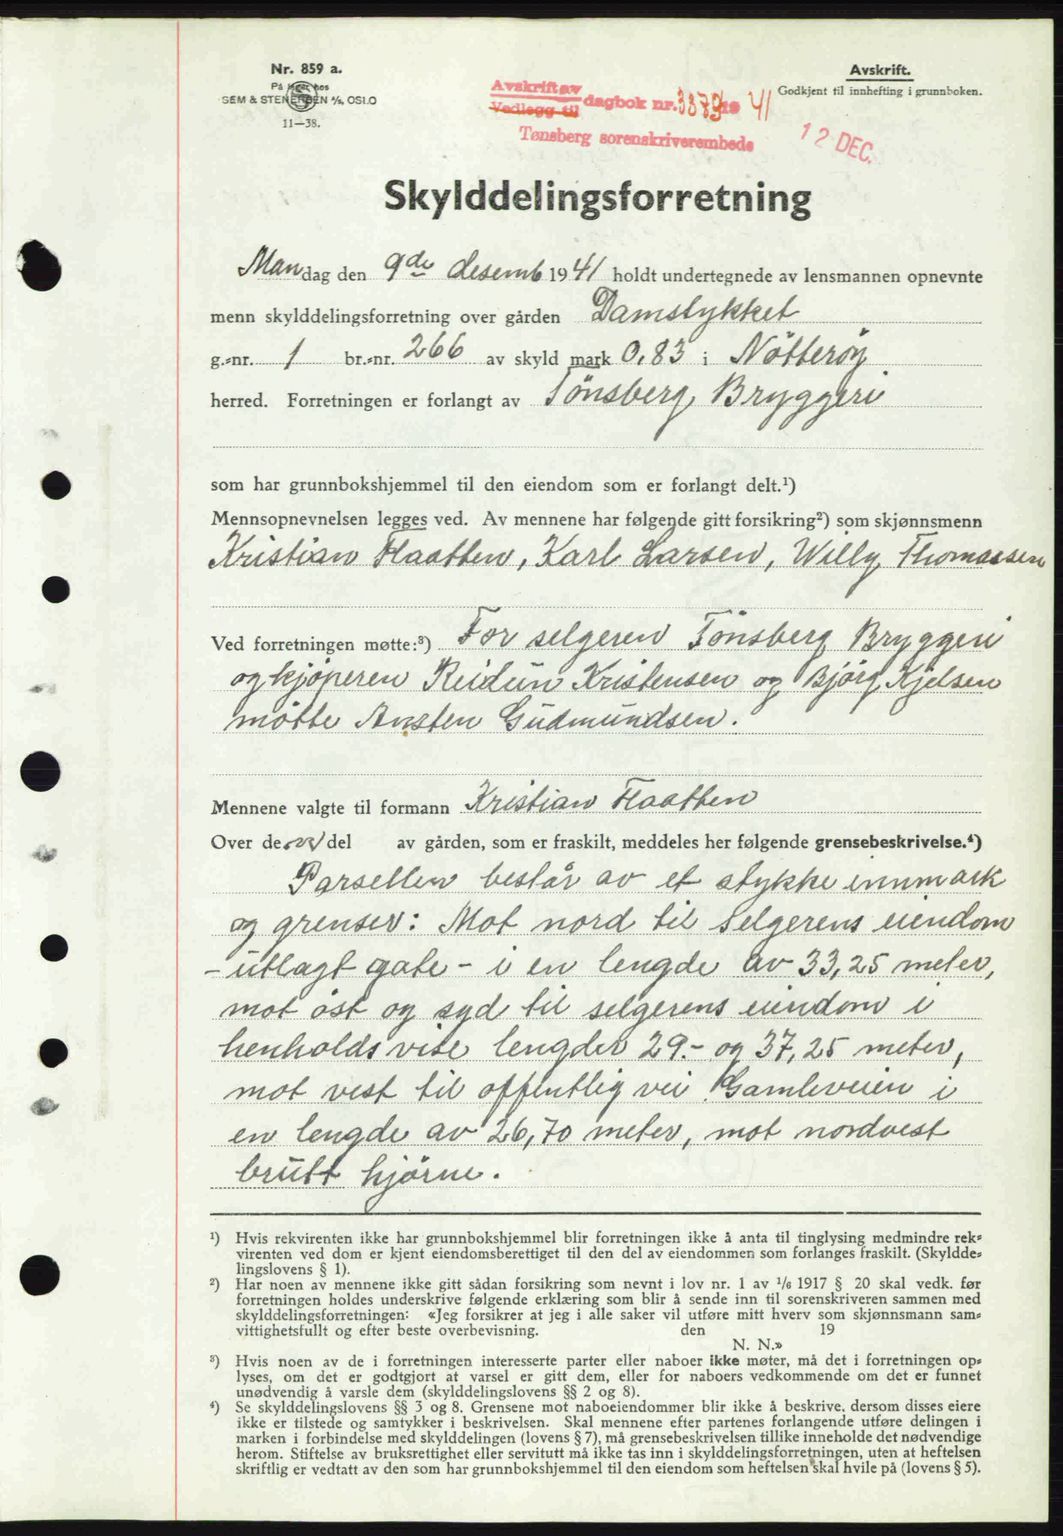 Nr. 859 a.
På lager hos
SEM & STENERSEN A/S, OSLO
11—38.
Avskrift.
Godkjent til innhefting i grunnboken.
Avskrift av
Vedlegg til dagbok nr. 3379 19 41
Tønsberg sorenskriverembede
12 DEC.
Skylddelingsforretning
Mandag den 9de desemb 1941 holdt undertegnede av lensmannen opnevnte
menn skylddelingsforretning over gården Damstykket
g.-nr. 1 br.-nr. 266 av skyld mark 0,83 i Nötteröy
herred. Forretningen er forlangt av Tönsberg Bryggeri
som har grunnbokshjemmel til den eiendom som er forlangt delt.¹)
Mennsopnevnelsen legges ved. Av mennene har følgende gitt forsikring²) som skjønnsmenn
Kristian Haatten, Karl Larsen, Willy Thomassen
Ved forretningen møtte:³) For selgeren Tönsberg Bryggeri
og kjöperen Reidun Kristensen og Bjørg Kjelsen
mötte Ansten Gudmundsen.
Mennene valgte til formann Kristian Haatten
Over de del av gården, som er fraskilt, meddeles her følgende grensebeskrivelse.⁴)
Parsellen består av et stykke innmark
og grenser: Mot nord til selgerens eiendom
- utlagt gate - i en lengde av 33,25 meter,
mot öst og syd til selgerens eiendom i
henholdsvise lengder 29.- og 37,25 meter,
mot vest til offentlig vei Gamleveien i
en lengde av 26,70 meter, mot nordvest
brutt hjörne.
¹) Hvis rekvirenten ikke har grunnbokshjemmel blir forretningen ikke å anta til tinglysing medmindre rek-
virenten ved dom er kjent eiendomsberettiget til den del av eiendommen som forlanges fraskilt. (Skyldde-
lingslovens § 1).
²) Har noen av mennene ikke gitt sådan forsikring som nevnt i lov nr. 1 av 1/6 1917 § 20 skal vedk. før
forretningen holdes underskrive følgende erklæring som blir å sende inn til sorenskriveren sammen med
skylddelingsforretningen: «Jeg forsikrer at jeg i alle saker vil utføre mitt hverv som skjønnsmann sam-
vittighetsfullt og efter beste overbevisning. den 19
N. N.»
³) Hvis noen av de i forretningen interesserte parter eller naboer ikke møter, må det i forretningen op-
lyses, om det er godtgjort at varsel er gitt dem, eller for naboers vedkommende om det er funnet
unødvendig å varsle dem (skylddelingslovens §§ 2 og 8).
⁴) Se skylddelingslovens §§ 3 og 8. Grensene mot naboeiendommer blir ikke å beskrive, dersom disses eiere
ikke er tilstede og samtykker i beskrivelsen. Skal mennene efter partenes forlangende utføre delingen i
marken i forbindelse med skylddelingen (lovens § 7), må grensebeskrivelsen tillike inneholde det nødvendige
herom. Stiftelse av bruksrettighet eller servitutt må ikke tas inn i skylddelingsforretningen, uten at heftelsen
skriftlig er vedtatt av den som har grunnbokshjemmel til den eiendom som heftelsen skal hvile på (lovens § 5).